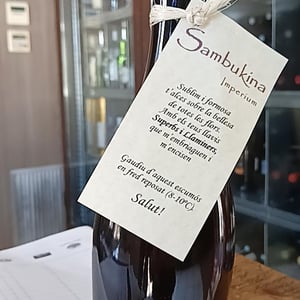 Sambukina
Imperium
Sublim i formosa
t'alces sobre la bellesa
de totes les flors.
Amb els teus llavis
Superbs i Llaminers,
que m'embriaguen i
m'encisen
Gaudiu d'aquest escumós
en fred reposat (8-10ºC).
Salut!